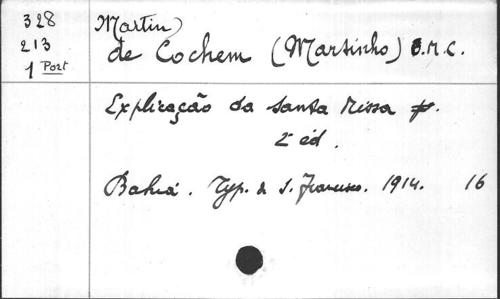 328
213
1 Port
Martin)
de Cochem (Martinho) O.M.C.
Explicação da santa Missa
2ª éd.
Bahia. Typ. de S. Francisco. 1914. 16